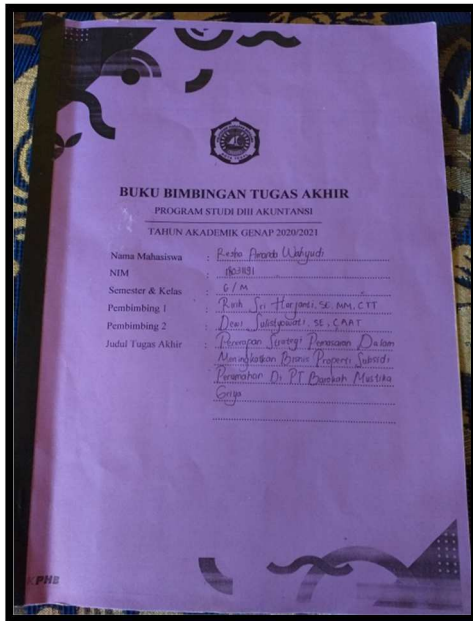 BUKU BIMBINGAN TUGAS AKHIR
PROGRAM STUDI DIII AKUNTANSI
TAHUN AKADEMIK GENAP 2020/2021
Nama Mahasiswa : Wahyudi
NIM :
Semester & Kelas : 6 / M
Pembimbing 1 : Sri Harjanti, SE, MM, CTT
Pembimbing 2 : Dewi Sulistyowati, SE, CAAT
Judul Tugas Akhir : Penerapan Strategi Pemasaran Dalam
Meningkatkan Bisnis Properti Subsidi
Perumahan Di PT Barokah Mustika
Griya
PHB